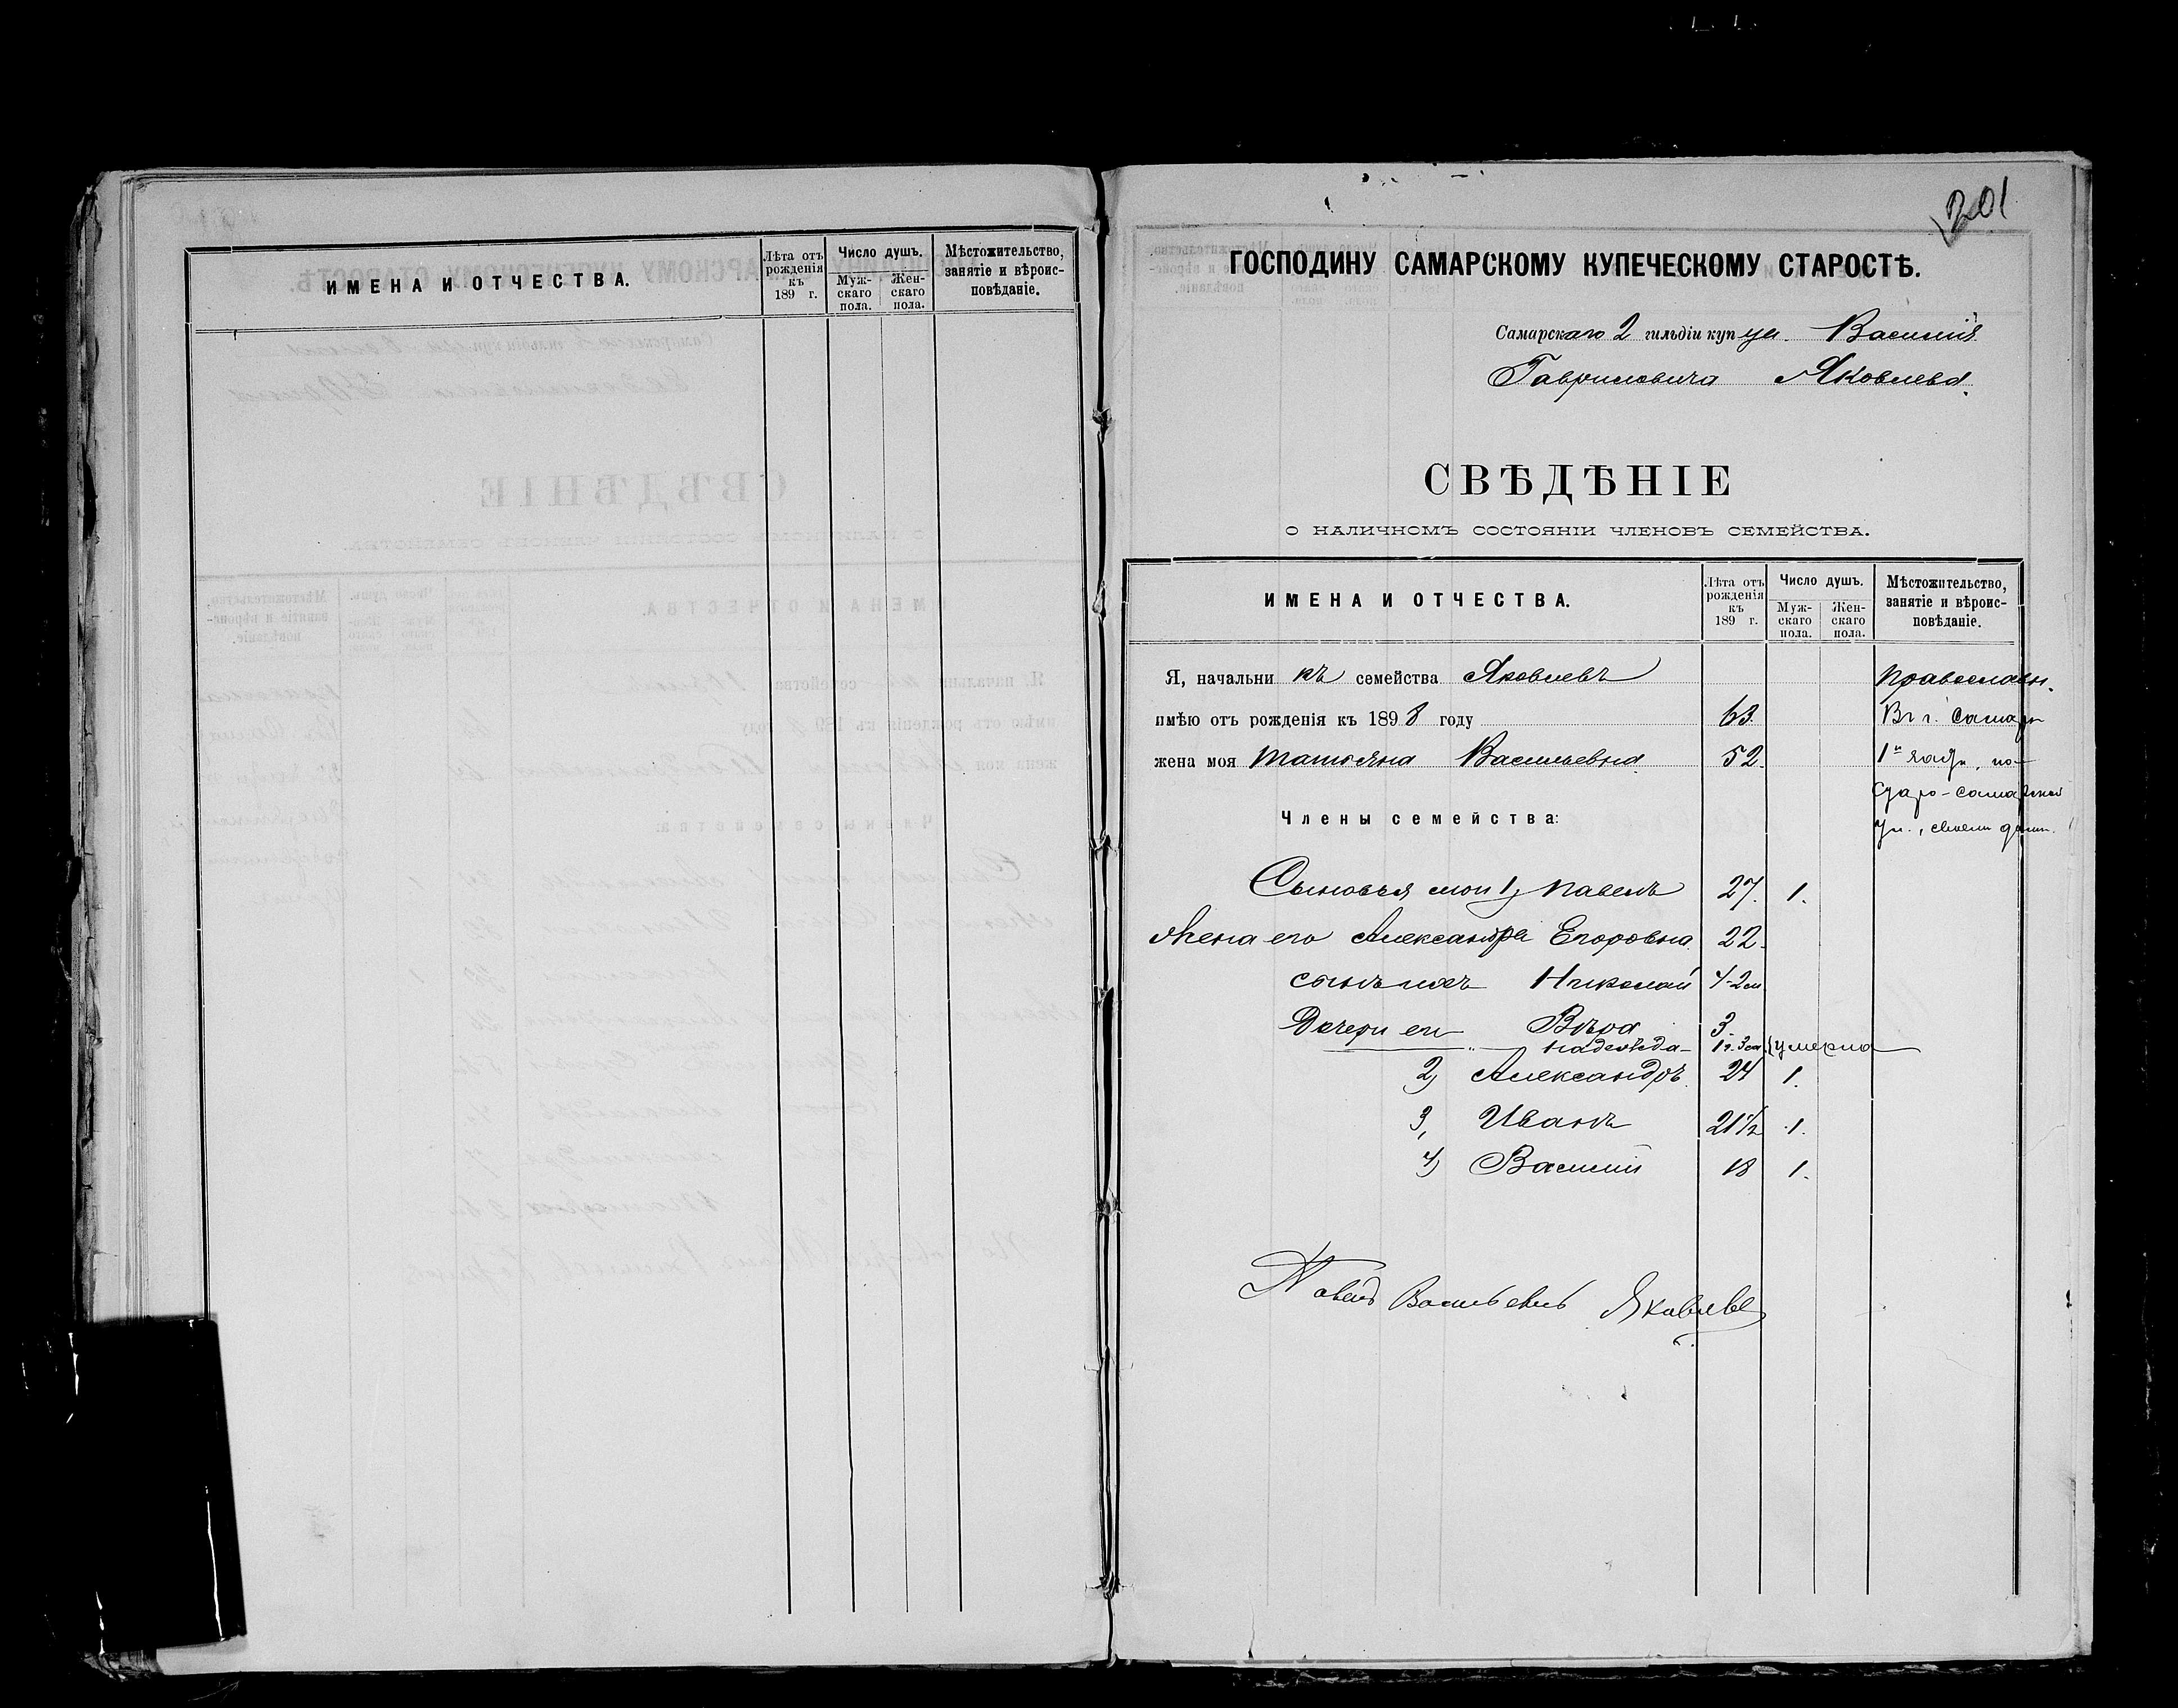 ИМЕНА И ОТЧЕСТВА.
Лѣта отъ рожденія къ 189 г.
Число душъ.
Мужскаго пола.
Женскаго пола.
Мѣстожительство, занятіе и вѣроисповѣданіе.
201
ГОСПОДИНУ САМАРСКОМУ КУПЕЧЕСКОМУ СТАРОСТѢ.
Самарскаго 2 гильдіи купца Василія
Гавриловича Яковлева.
СВѢДѢНІЕ
О НАЛИЧНОМЪ СОСТОЯНІИ ЧЛЕНОВЪ СЕМЕЙСТВА.
ИМЕНА И ОТЧЕСТВА.
Лѣта отъ рожденія къ 189 г.
Число душъ.
Мужскаго пола.
Женскаго пола.
Мѣстожительство, занятіе и вѣроисповѣданіе.
Я, начальникъ семейства Яковлевъ православн.
имѣю отъ рожденія къ 1898 году 63. Въ г. Самарѣ
жена моя Татьяна Васильевна 52. 1й части, по
Члены семейства:
Старо-Самарской
ул., своемъ домѣ.
Сыновья мои 1, Павелъ 27. 1.
Жена его Александра Егоровна. 22.
сынъ ихъ Николай
Дочери ея Вѣра 3.
—„— Надежда 1 г. 3 м. умерла
2) Александръ. 24 1.
3, Иванъ 21 1/2 1.
4) Василій 18 1.
Павелъ Васильевъ Яковлев